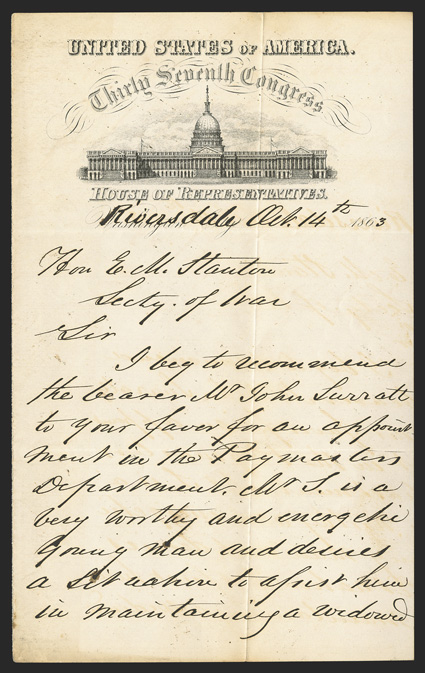 UNITED STATES OF AMERICA.
Thirty Seventh Congress
HOUSE OF REPRESENTATIVES.
Riversdale Oct. 14th 1863
Hon E. M. Stanton
Secty. of War
Sir
I beg to recommend
the bearer Mr John Surratt
to your favor for an appoint
ment in the Paymasters
Department. Mr S. is a
very worthy and energetic
young man and desires
a situation to assist him
in maintaining a widowed